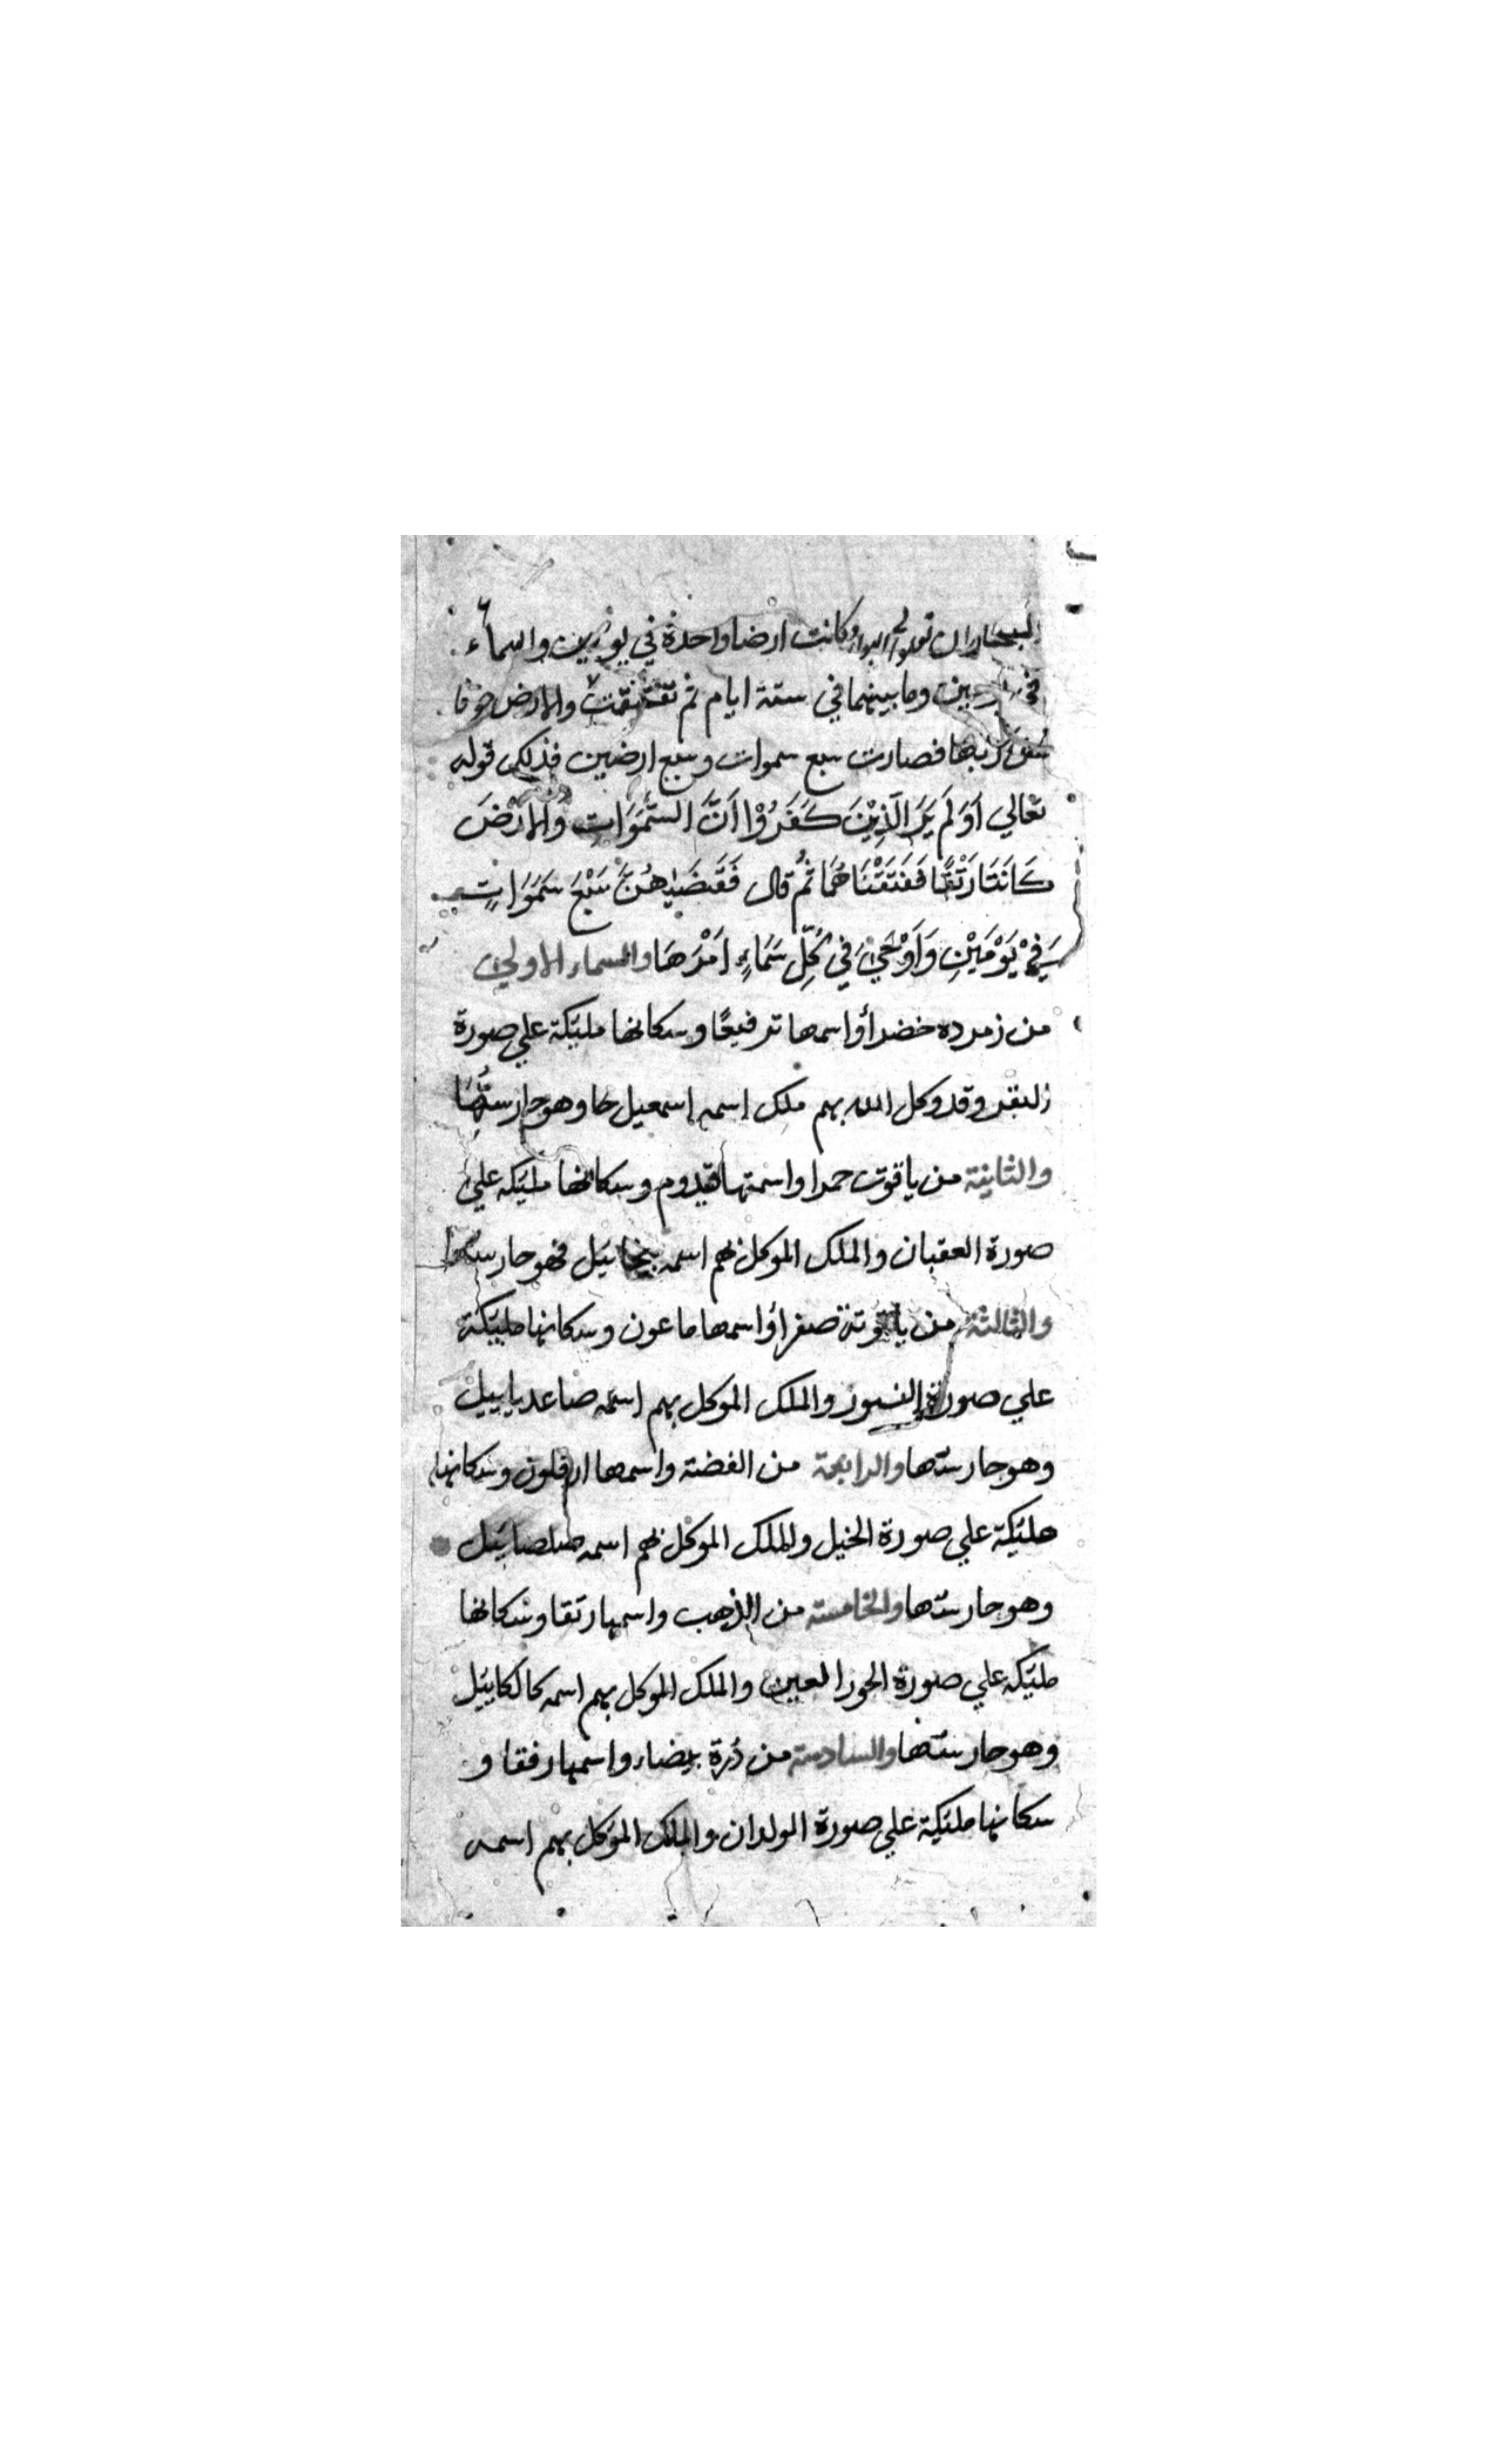 كانت ارضا واحدة في يومين والسماء
وما بينهما في ستة ايام ثم والارض خوفا
فصارت سبع سموات وسبع ارضين فذلك قوله
تعالي اَوَلَم يَرَ الَّذِيْنَ كَفَرُوْا اَنَّ السَّمَوَاتِ وَالاَرْضَ
كَانَتَا رَتْقًا فَفَتَقْنَاهُمَا ثُم قال فَقَضٰيهُنَّ سَبْعَ سَمَوَاتٍ
فِيْ يَوْمَيْنِ وَاَوْحٰي فِي كُلِّ سَمَاءٍ اَمْرَهَا والسماء الاولي
من زمرده خضرأ واسمها ترفيعًا وسكانها مليكة علي صورة
البقر وقد وكل الله بهم ملك اسمه اسمعيل وهو حارسها
والثانية من ياقوت حمرا واسمها قيدوم وسكانها مليكه علي
صورة العقبان والملك الموكل بهم اسمه فهو حارسها
والثالثة من ياقوتة صفرأ واسمها ماعون وسكانها مليكة
علي صورة النسور والملك الموكل بهم اسمه صاعديابيل
وهو حارسها والرابعة من الفضة واسمها ارفلون وسكانها
مليكة علي صورة الخيل والملك الموكل بهم اسمه صلصائيل
وهو حارسها والخامسة من الذهب واسمها رتقا وسكانها
مليكه علي صورة الحور العين والملك الموكل بهم اسمه كالكائيل
وهو حارسها والسادسة من دُرة بيضاء واسمها رفقا و
سكانها مليكة علي صورة الولدان والملك الموكل بهم اسمه